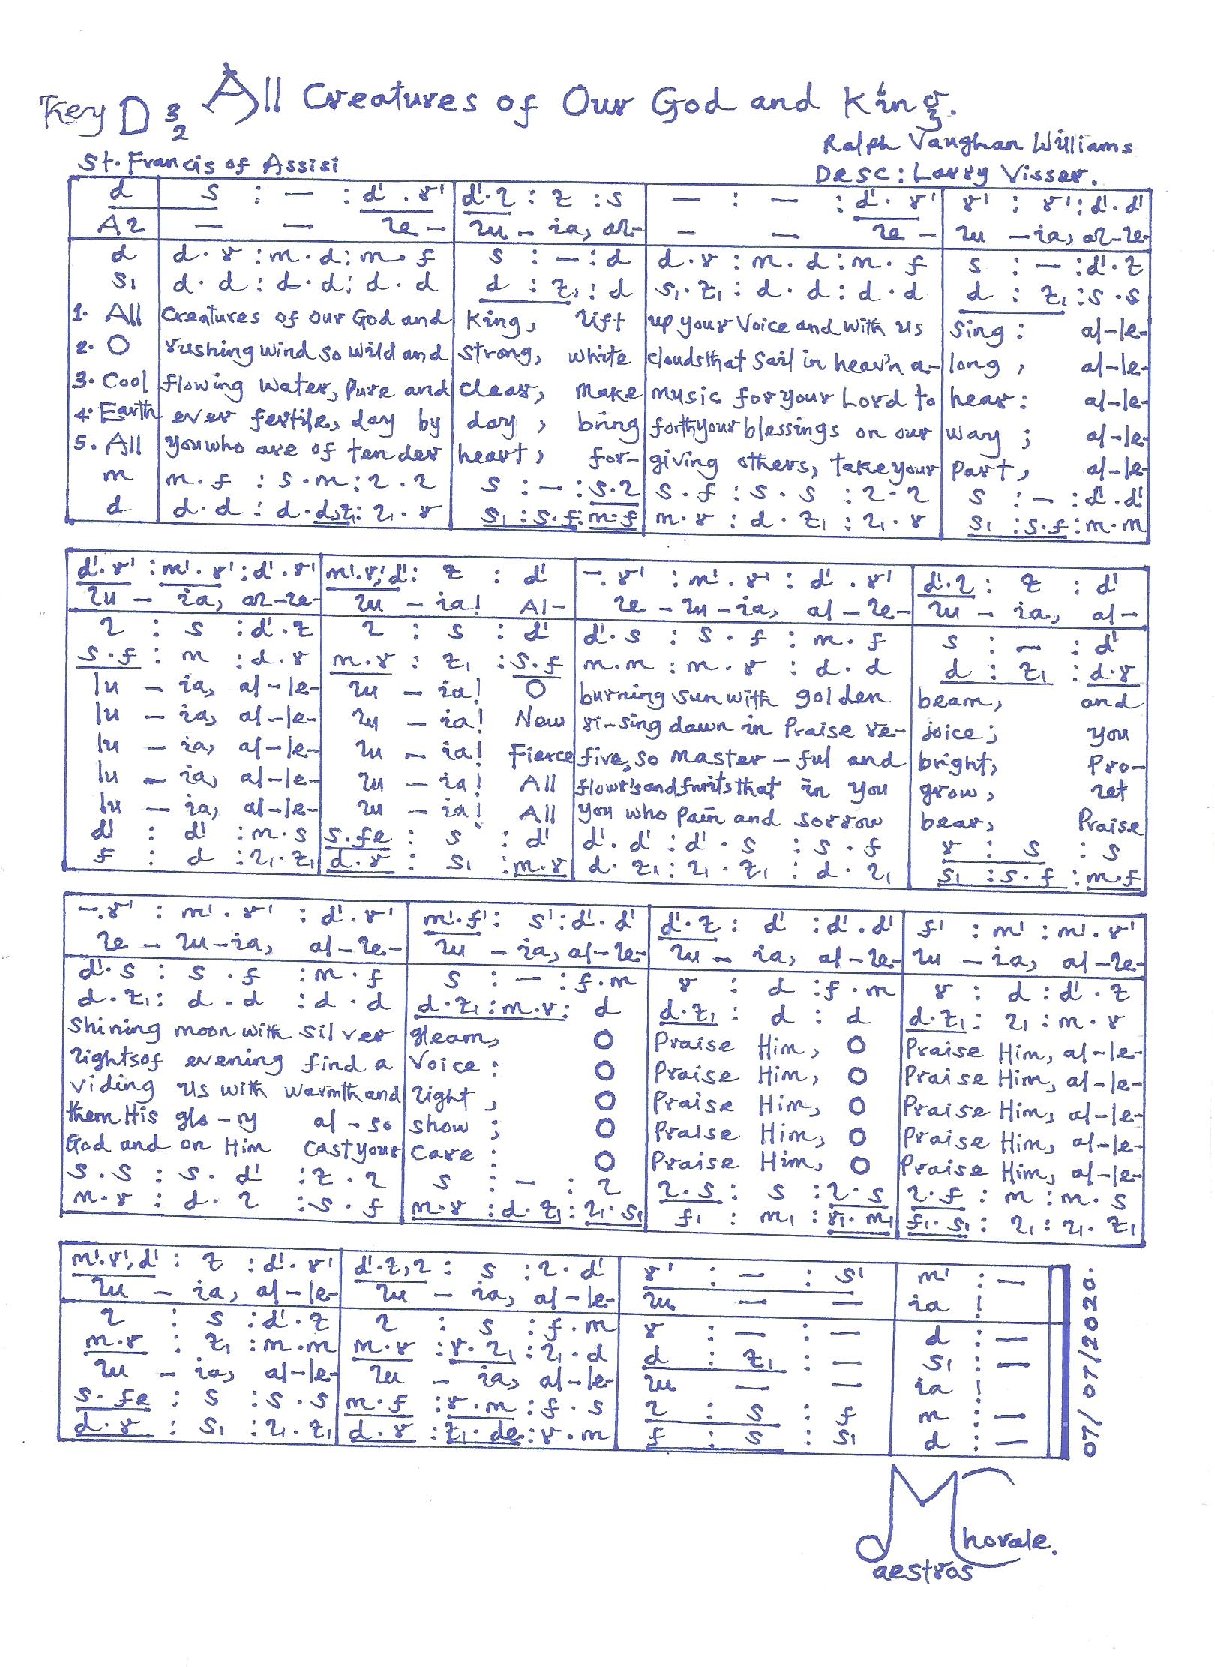 Key D 3/2 All Creatures of Our God and King.
Ralph Vaughan Williams
St. Francis of Assisi
Desc: Larry Visser.
d | s : – : d'. r' | d'. l : t : s | – : – : d'. r' | r' : r' : d'. d'
Al | – – le – | lu – ia, al- | – – le – | lu – ia, al-le-
d | d. r : m. d : m. f | s : – : d | d. r : m. d : m. f | s : – : d'. t
s₁ | d. d : d. d : d. d | d : t₁ : d | s₁. t₁ : d. d : d. d | d : t₁ : s. s
1. All | Creatures of our God and | King, lift | up your Voice and with us | Sing: al-le-
2. O | rushing wind so wild and | strong, white | clouds that sail in heav'n a- | long, al-le-
3. Cool | flowing water, pure and | clear, make | music for your Lord to | hear: al-le-
4. Earth | ever fertile, day by | day, bring | forth your blessings on our | way; al-le-
5. All | you who are of tender | heart, for- | giving others, take your | part, al-le-
m | m. f : s. m : l. l | s : – : s. l | s. f : s. s : l. l | s : – : d'. d'
d | d. d : d. dst₁ : l₁. r | s₁ : s. f : m. f | m. r : d. t₁ : l₁. r | s₁ : s. f : m. m
d'. r' : m'. r' : d'. r' | m'. r', d' : t : d' | –. r' : m'. r' : d'. r' | d'. l : t : d'
lu – ia, al-le- | lu – ia! Al- | le – lu – ia, al – le- | lu – ia, al –
l : s : d'. t | l : s : d' | d'. s : s. f : m. f | s : – : d'
s. f : m : d. r | m. r : t₁ : s. f | m. m : m. r : d. d | d : t₁ : d. r
lu – ia, al-le- | lu – ia! O | burning sun with golden | beam, and
lu – ia, al-le- | lu – ia! New | ri-sing dawn in Praise re- | joice; you
lu – ia, al-le- | lu – ia! Fierce | fire, so master – ful and | bright, pro-
lu – ia, al-le- | lu – ia! All | flow'rs and fruits that in you | grow, let
lu – ia, al-le- | lu – ia! All | you who pain and sorrow | bear, Praise
d' : d' : m. s | s. fe : s : d' | d'. d' : d'. s : s. f | r : s : s
f : d : l₁. t₁ | d. r : s₁ : m. r | d. t₁ : l₁. t₁ : d. l₁ | s₁ : s. f : m. f
–. r' : m'. r' : d'. r' | m'. f' : s' : d'. d' | d'. t : d' : d'. d' | f' : m' : m'. r'
le – lu – ia, al – le- | lu – ia, al – le- | lu – ia, al – le- | lu – ia, al – le-
d'. s : s. f : m. f | s : – : f. m | r : d : f. m | r : d : d'. t
d. t₁ : d. d : d. d | d. t₁ : m. r : d | d. t₁ : d : d | d. t₁ : l₁ : m. r
Shining moon with silver | gleam, O | Praise Him, O | Praise Him, al-le-
lights of evening find a | Voice: O | Praise Him, O | Praise Him, al-le-
viding us with warmth and | light, O | Praise Him, O | Praise Him, al-le-
them His glo-ry al-so | show; O | Praise Him, O | Praise Him, al-le-
God and on Him cast your | care: O | Praise Him, O | Praise Him, al-le-
s. s : s. d' : t. l | s : – : l | l. s : s : l. s | l. f : m : m. s
m. r : d. l : s. f | m. r : d. t₁ : l₁. s₁ | f₁ : m₁ : r₁. m₁ | f₁. s₁ : l₁ : l₁. t₁
m'. r', d' : t : d'. r' | d'. t, l : s : l. d' | r' : – : s' | m' : –
lu – ia, al-le- | lu – ia, al-le- | lu – – | ia!
l : s : d'. t | l : s : f. m | r : – : – | d : –
m. r : t₁ : m. m | m. r : r. l₁ : l₁. d | d : t₁ : – | s₁ : –
lu – ia, al-le- | lu – ia, al-le- | lu – – | ia!
s. fe : s : s. s | m. f : r. m : f. s | l : s : f | m : –
d. r : s₁ : l₁. t₁ | d. r : t₁. de : r. m | f : s : s₁ | d : –
07/07/2020.
Maestros Chorale.